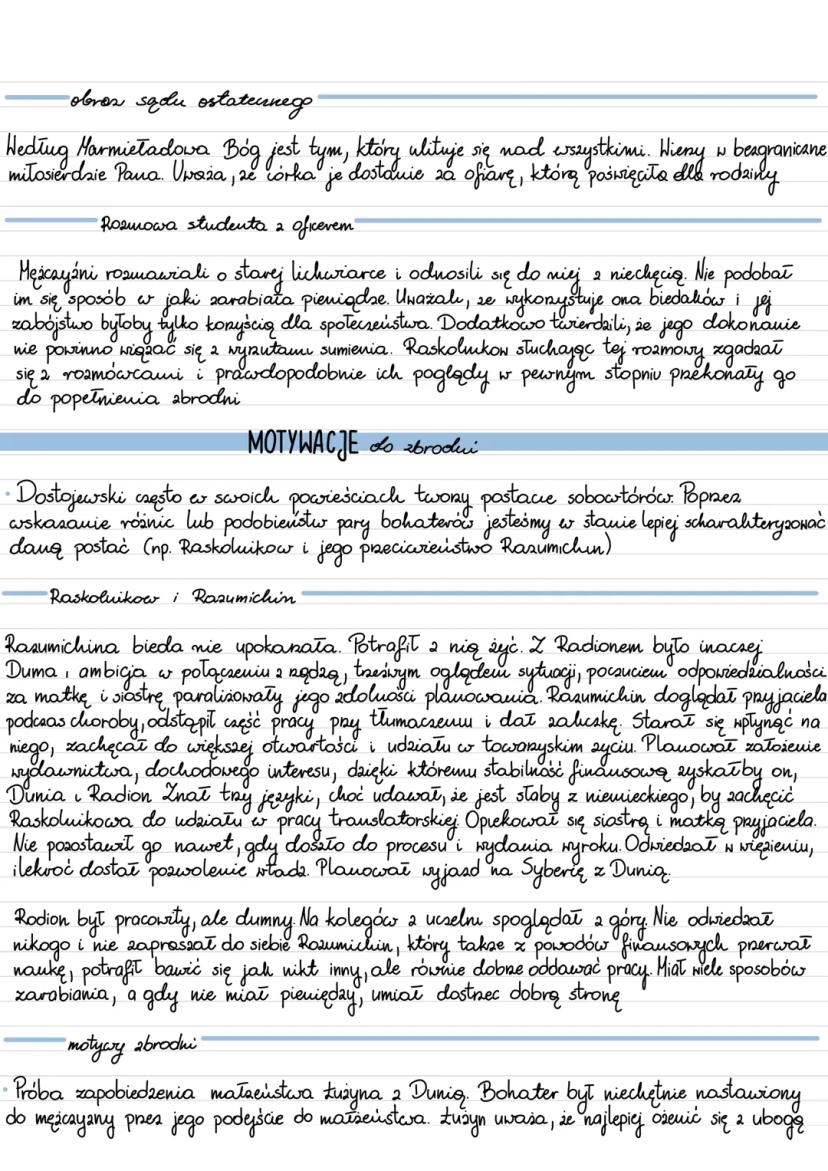 obraz sądu ostatecznego
Według Marmieładowa Bóg jest tym, który ulituje się nad wszystkimi. Wierzy w bezgraniczne
miłosierdzie Pana. Uważa, że córka je dostanie za ofiarę, którą poświęciła dla rodziny
Rozmowa studenta z oficerem
Mężczyźni rozmawiali o starej lichwiarce i odnosili się do niej z niechęcią. Nie podobał
im się sposób w jaki zarabiała pieniądze. Uważali, że wykorzystuje ona biedaków i jej
zabójstwo byłoby tylko korzyścią dla społeczeństwa. Dodatkowo twierdzili, że jego dokonanie
nie powinno wiązać się z wyrzutami sumienia. Raskolnikow słuchając tej rozmowy zgadzał
się z rozmówcami i prawdopodobnie ich poglądy w pewnym stopniu przekonały go
do popełnienia zbrodni
MOTYWACJE do zbrodni
• Dostojewski często w swoich powieściach tworzy postacie sobowtórów. Poprzez
wskazanie różnic lub podobieństw pary bohaterów jesteśmy w stanie lepiej scharakteryzować
daną postać (np. Raskolnikow i jego przeciwieństwo Razumichin)
Raskolnikow i Razumichin
Razumichina bieda nie upokarzała. Potrafił z nią żyć. Z Radionem było inaczej
Duma i ambicja w połączeniu z nędzą, trzeźwym oglądem sytuacji, poczuciem odpowiedzialności
za matkę i siostrę paraliżowały jego zdolności planowania. Razumichin doglądał przyjaciela
podczas choroby, odstąpił część pracy przy tłumaczeniu i dał zaliczkę. Starał się wpłynąć na
niego, zachęcał do większej otwartości i udziału w towarzyskim życiu. Planował założenie
wydawnictwa, dochodowego interesu, dzięki któremu stabilność finansową zyskałby on,
Dunia i Radion Znał trzy języki, choć udawał, że jest słaby z niemieckiego, by zachęcić
Raskolnikowa do udziału w pracy translatorskiej. Opiekował się siostrą i matką przyjaciela.
Nie pozostawił go nawet, gdy doszło do procesu i wydania wyroku. Odwiedzał w więzieniu,
ilekroć dostał pozwolenie władz. Planował wyjazd na Syberię z Dunią.
Rodion był pracowity, ale dumny. Na kolegów z uczelni spoglądał z góry. Nie odwiedzał
nikogo i nie zapraszał do siebie Razumichin, który także z powodów finansowych przerwał
naukę, potrafił bawić się jak nikt inny, ale równie dobrze oddawać pracy. Miał wiele sposobów
zarabiania, a gdy nie miał pieniędzy, umiał dostrzec dobrą stronę
motywy zbrodni
• Próba zapobiedzenia małżeństwa Łużyna z Dunią. Bohater był niechętnie nastawiony
do mężczyzny przez jego podejście do małżeństwa. Łużyn uważa, że najlepiej ożenić się z ubogą